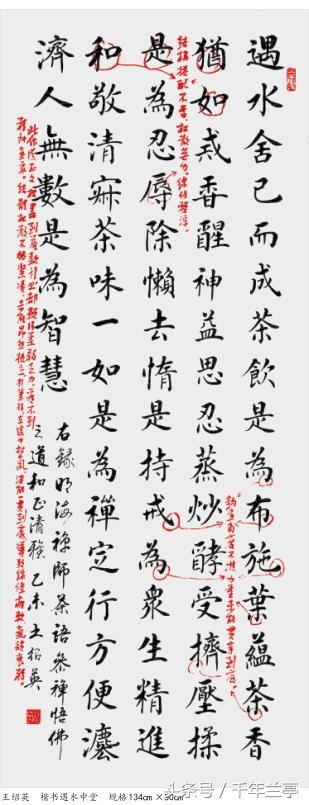 遇水舍己而成茶飲是為布施葉蘊茶香
猶如戒香醒神益思忍蒸炒酵受擠壓揉
是為忍辱除懶去惰是持戒為眾生精進
和敬清寂茶味一如是為禪定行方便灋
濟人無數是為智慧
右錄明海禪師茶語參禪悟佛
之道和正清雅乙未王紹英
结構搭配不當，松散無力，線條輕浮。
王绍英 楷书遇水中堂 规格134cm×50cm
头条号 / 千年兰亭